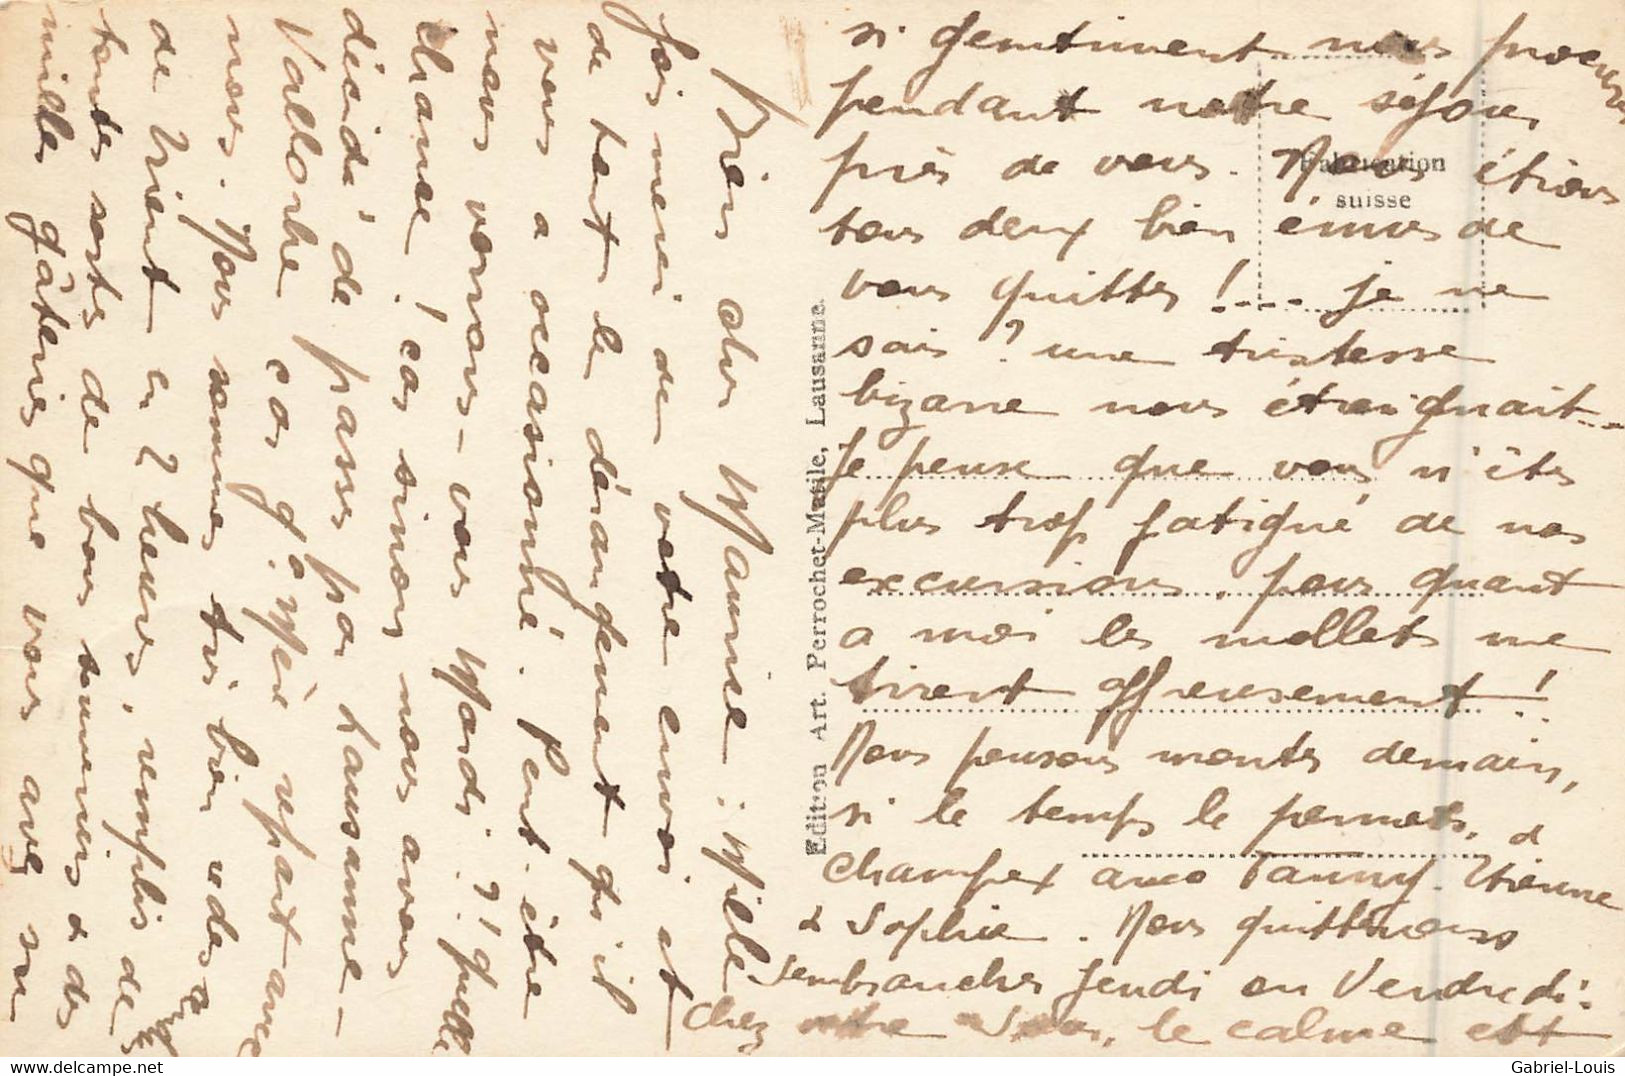 Bien cher Maurice : Mille
fois merci de votre envoi et
de tout le dérangement qu'il
vous a occasionné. Peut-être
nous verrons-vous Mardi ?! quelle
chance ! car sinon nous avons
décidé de passer par Lausanne-
Vallorbe car q'
nous. Nous sommes très bien
de Trient en 2 heures, remplis de
toutes sortes de bons souvenirs & des
milles gâteries que vous avez su
si gentiment nous procurer
pendant notre séjour
près de vous. Nous étions
tous deux bien émus de
vous quitter !... je ne
sais ? une tristesse
bizarre nous étreignait...
Je pense que vous n'êtes
plus trop fatigué de nos
excursions, pour quant
a moi les mollets me
tirent affreusement !
Nous pensons monter demain,
si le temps le permets, à
Champex avec Fanny. Etienne
& Sophie. Nous quitterons
Sembrancher Jeudi ou Vendredi.
Chez notre le calme est
Fabrication
suisse
Edition Art. Perrochet-Matile, Lausanne
hipPostcard.com